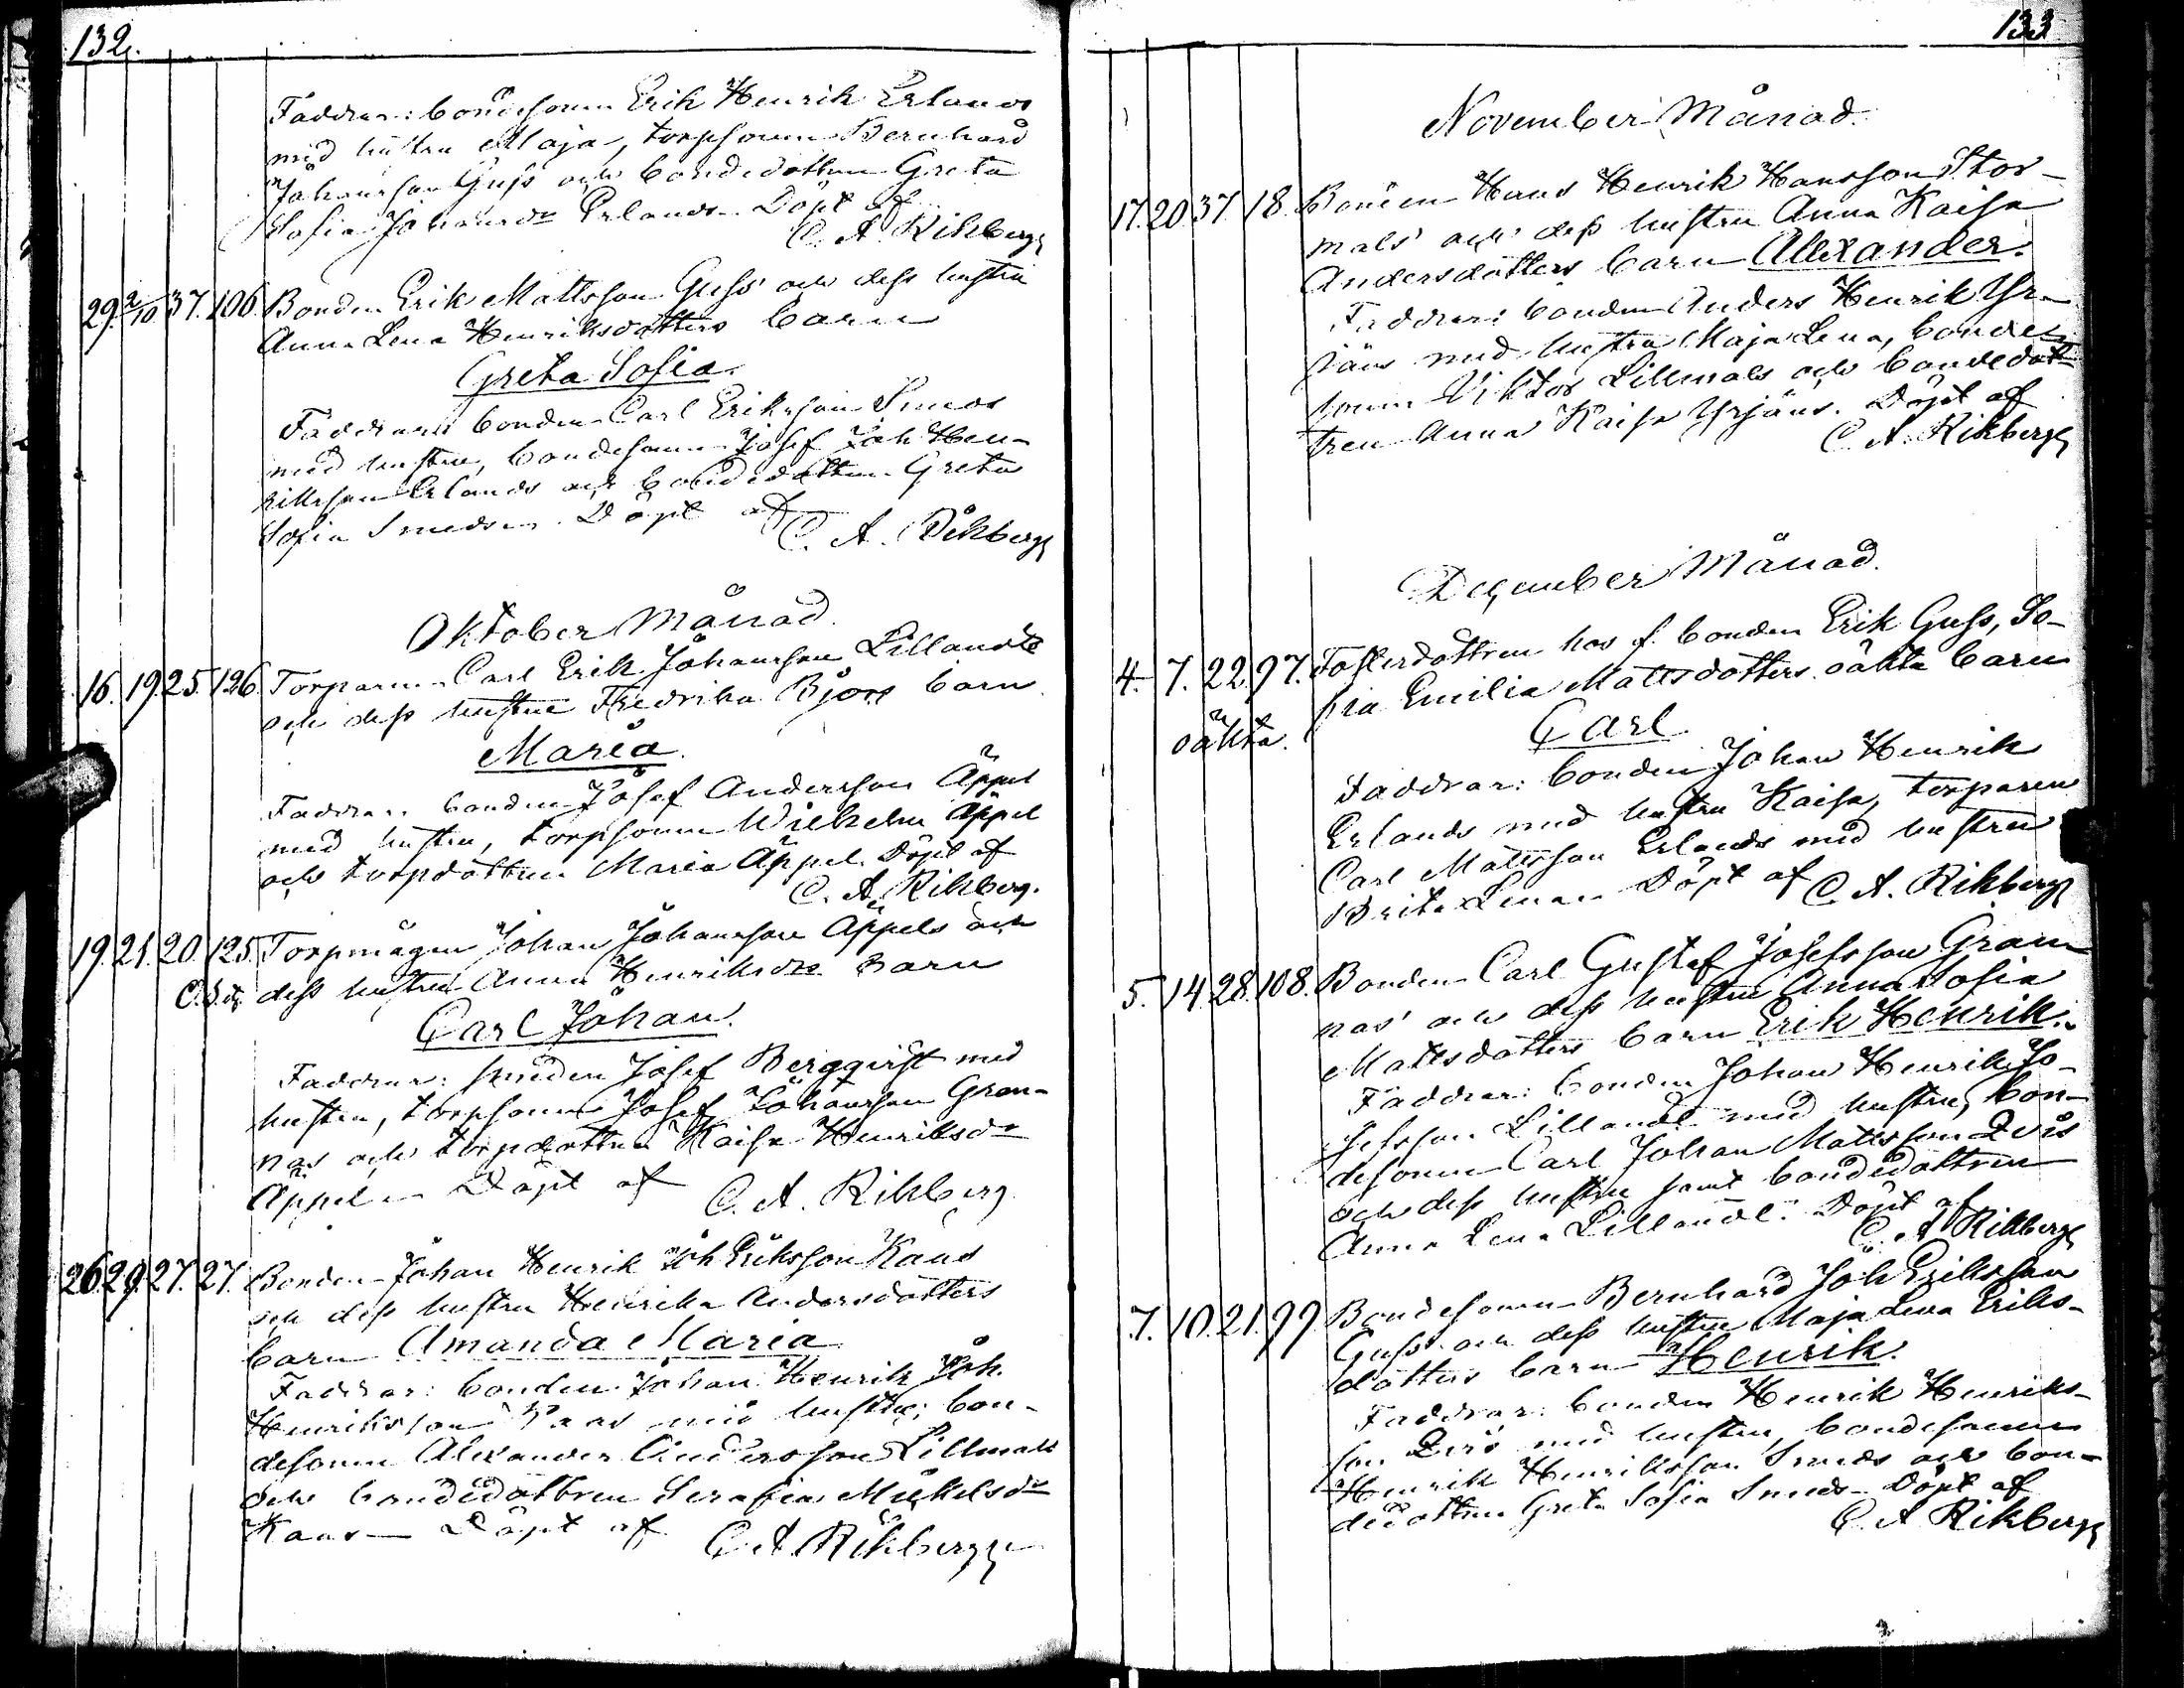 132.
Faddrar: bondesonen Erik Henrik Erlands
med hustru Maja, torpsonen Bernhard
Johansson Guss och bondedottren Greta
Sofia Johansdr Erlands. Döpt af
C. A. Rikberg
29. 2/10 37. 106. Bonden Erik Mattsson Guss' och dess hustru
Anna Lena Henriksdotters barn
Greta Sofia.
Faddrar: bonden Carl Eriksson Smeds
med hustru, bondesonen Josef Joh Hen-
riksson Erlands och bondedottren Greta
Sofia Smeds. Döpt af
C. A. Rikberg
Oktober Månad.
16. 19. 25. 126. Torparen Carl Erik Johansson Lillandts
och dess hustru Fredrika Björs barn
Maria.
Faddrar: bonden Josef Andersson Äppel
med hustru, torpsonen Wilhelm Äppel
och torpdottren Maria Äppel. Döpt af
C. A. Rikberg.
19. 21. 20. 125. Torpmågen Johan Johansson Äppels och
dess hustru Anna Henriksdrs barn
Carl Johan.
Faddrar: smeden Josef Bergqvist med
hustru, torpsonen Josef Johansson Gran-
nas och torpdottren Kaisa Henriksdr
Äppel. Döpt af
C. A. Rikberg
26. 29. 27. 27. Bonden Johan Henrik Joh Eriksson Kaas
och dess hustru Henrika Andersdotters
barn Amanda Maria
Faddrar: bonden Johan Henrik Joh.
Henriksson Kaas med hustru, bon-
desonen Alexander Andersson Lillmals
och bondedottren Serafia Mickelsdr
Kaas Döpt af
C. A. Rikberg
133
November Månad.
17. 20. 37. 18. Bonden Hans Henrik Hansson Stor-
mals' och dess hustru Anna Kaisa
Andersdotters barn Alexander.
Faddrar: bonden Anders Henrik Yr-
jäns med hustru Maja Lena, bonde-
sonen Viktor Lillmals och bondedot-
tren Anna Kaisa Yrjäns. Döpt af
C. A. Rikberg
December Månad.
4. 7. 22. 97. Fosterdottren hos f. bonden Erik Guss, So-
fia Emilia Mattsdotters oäkta barn
oäkta.
Carl
Faddrar: bonden Johan Henrik
Erlands med hustru Kaisa, torparen
Carl Mattsson Erlands med hustru
Brita Lena. Döpt af C. A. Rikberg
5. 14. 28. 108. Bonden Carl Gustaf Josefsson Gran-
nas' och dess hustru Anna Sofia
Mattsdotters barn Erik Henrik.
Faddrar: bonden Johan Henrik Jo-
sefsson Lillandt med hustru, bon-
desonen Carl Johan Mattsson Qvis
och dess hustru samt bondedottren
Anna Lena Lillandt. Döpt af
C. A. Rikberg
7. 10. 21. 99. Bondesonen Bernhard Joh Eriksson
Guss' och dess hustru Maja Lena Eriks-
dotters barn Henrik.
Faddrar: bonden Henrik Henriks-
son Qvis med hustru, bondesonen
Henrik Henriksson Smeds och bon-
dedottren Greta Sofia Smeds. Döpt af
C. A. Rikberg